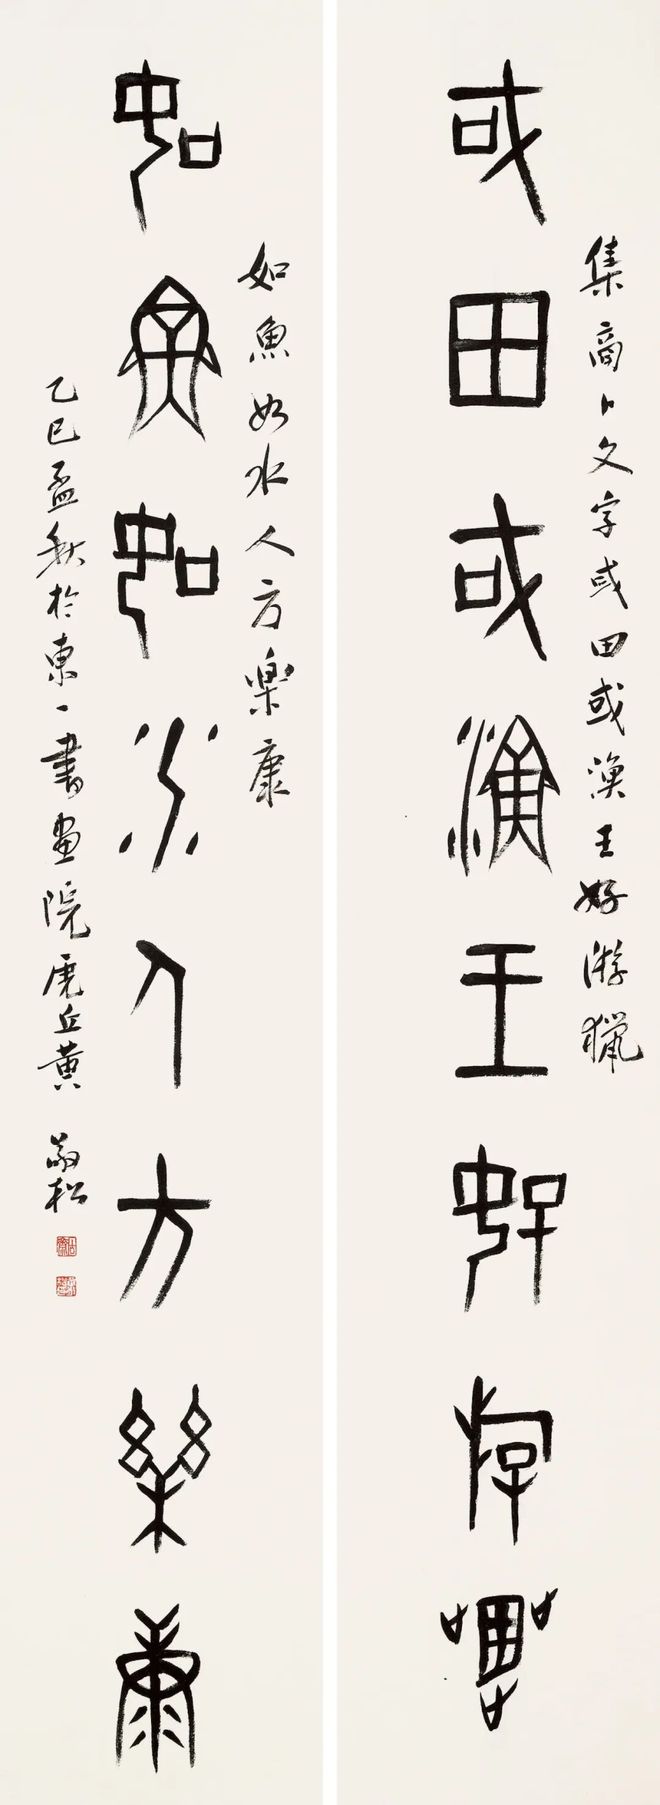 或田或漁王好游獵
集商卜文字或田或漁王好游獵
如魚如水人方樂康
如魚如水人方樂康
乙巳孟秋於東一書畫院虎丘黄
敬松